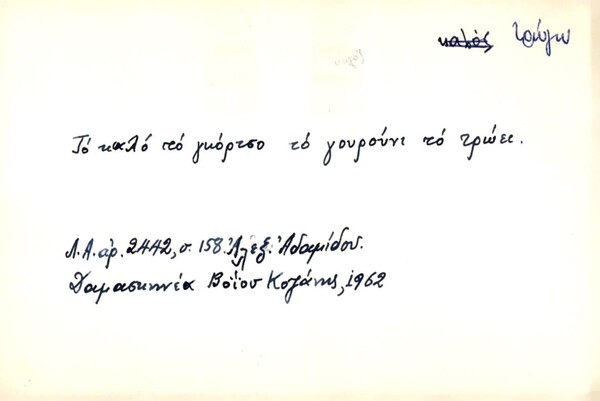 καλός τρώγω
Τό καλό τό γκόρτσο τό γουρούνι τό τρώει.
Λ.Α. ἀρ. 2442, σ. 158. Ἀλεξ. Ἀδαμίδου.
Δαμασκηνέα Βοΐου Κοζάνης, 1962